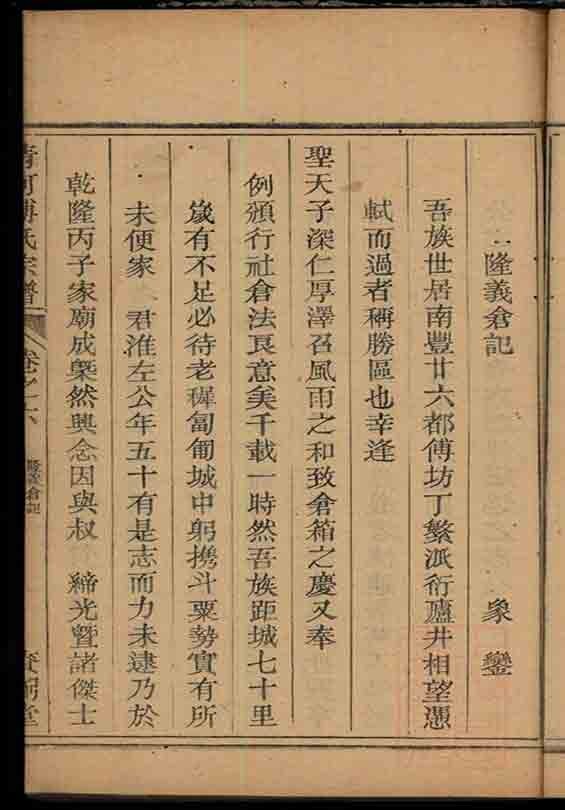 隆義倉記 象鑾
吾族世居南豐廿六都傅坊丁繁派衍廬井相望憑
軾而過者稱勝區也幸逢
聖天子深仁厚澤召風雨之和致倉箱之慶又奉
例頒行社倉法良意美千載一時然吾族距城七十里
歲有不足必待老穉匍匐城中躬携斗粟勢實有所
未便家 君淮左公年五十有是志而力未逮乃於
乾隆丙子家廟成槩然興念因與叔 締光暨諸傑士
清河傅氏宗譜 卷之六 隆義倉記